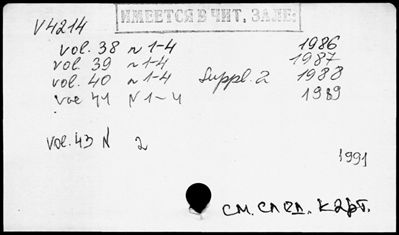 V4214
ИМЕЕТСЯ В ЧИТ. ЗАЛЕ:
vol. 38 N 1-4 1986
vol. 39 N 1-4 1987
vol. 40 N 1-4 Suppl. 2 1988
vol 41 N 1-4 1989
vol. 43 N 2
1991
см. след. карт.